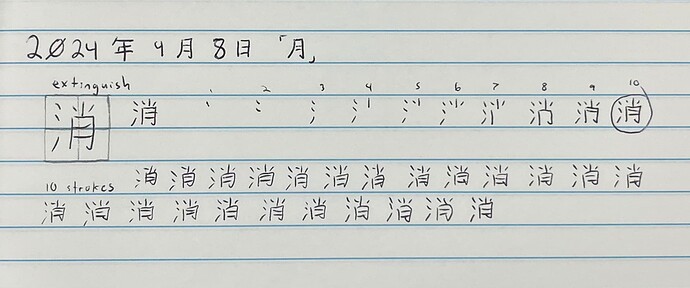 2024 年 4 月 8 日 「月」
extinguish 1 2 3 4 5 6 7 8 9 10
消 消 丶 冫 氵 消
10 strokes 消 消 消 消 消 消 消 消 消 消 消 消 消
消 消 消 消 消 消 消 消 消 消 消